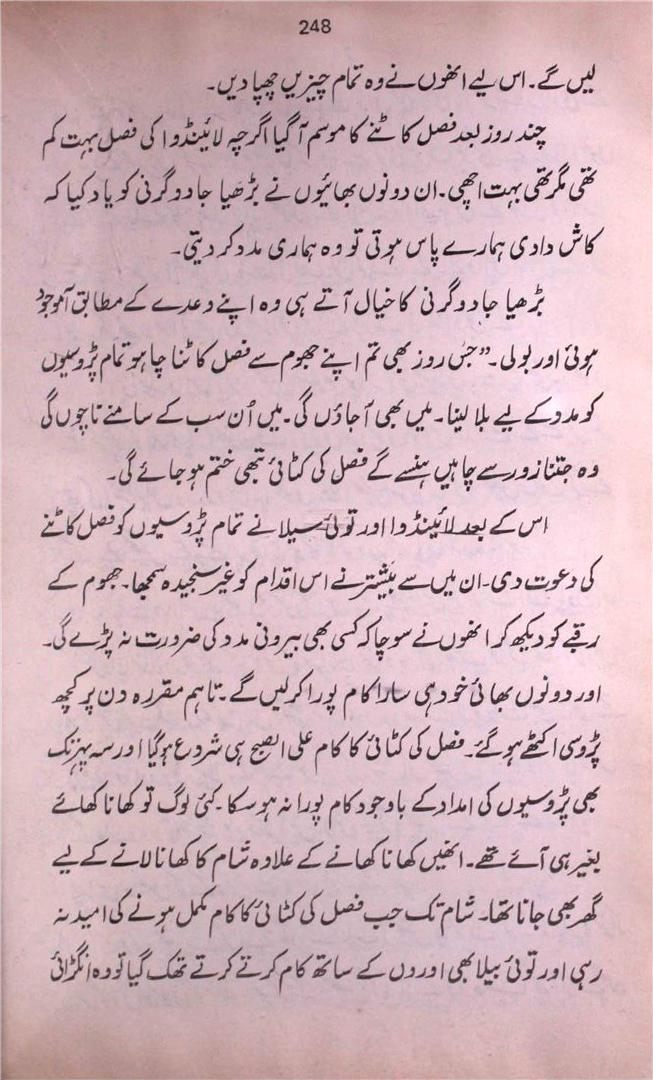 248
لیں گے۔ اس لیے انھوں نے وہ تمام چیزیں چھپا دیں۔
چند روز بعد فصل کاٹنے کا موسم آ گیا اگرچہ لائینڈوا کی فصل بہت کم
تھی مگر تھی بہت اچھی۔ ان دونوں بھائیوں نے بڑھیا جادوگرنی کو یاد کیا کہ
کاش دادی ہمارے پاس ہوتی تو وہ ہماری مدد کر دیتی۔
بڑھیا جادوگرنی کا خیال آتے ہی وہ اپنے وعدے کے مطابق آموجود
ہوئی اور بولی۔ "جس روز بھی تم اپنے جھوم سے فصل کاٹنا چاہو تمام پڑوسیوں
کو مدد کے لیے بلا لینا۔ میں بھی آجاؤں گی۔ میں اُن سب کے سامنے ناچوں گی
وہ جتنا زور سے چاہیں ہنسے گے فصل کی کٹائی تبھی ختم ہو جائے گی۔
اس کے بعد لائینڈوا اور توئی سیلا نے تمام پڑوسیوں کو فصل کاٹنے
کی دعوت دی۔ ان میں سے بیشتر نے اس اقدام کو غیر سنجیدہ سمجھا۔ جھوم کے
رقبے کو دیکھ کر انھوں نے سوچا کہ کسی بھی بیرونی مدد کی ضرورت نہ پڑے گی۔
اور دونوں بھائی خود ہی سارا کام پورا کر لیں گے۔ تاہم مقررہ دن پر کچھ
پڑوسی اکٹھے ہو گئے۔ فصل کی کٹائی کا کام علی الصبح ہی شروع ہو گیا اور سہ پہر تک
بھی پڑوسیوں کی امداد کے باوجود کام پورا نہ ہو سکا۔ کئی لوگ تو کھانا کھائے
بغیر ہی آئے تھے۔ انھیں کھانا کھانے کے علاوہ شام کا کھانا لانے کے لیے
گھر بھی جانا تھا۔ شام تک جب فصل کی کٹائی کا کام مکمل ہونے کی امید نہ
رہی اور توئی سیلا بھی اوروں کے ساتھ کام کرتے کرتے تھک گیا تو وہ انگڑائی